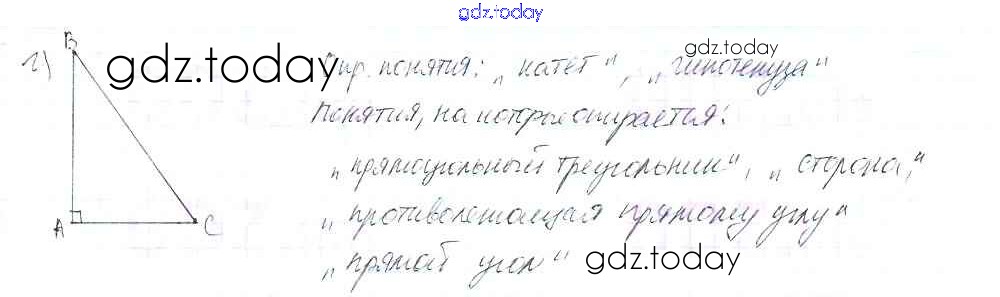 gdz.today
В
г) Опр. понятия: „катет“, „гипотенуза“
gdz.today
gdz.today
Понятия, на которые опирается:
„прямоугольный треугольник“, „сторона,“
А С „противолежащая прямому углу“
„прямой угол“
gdz.today